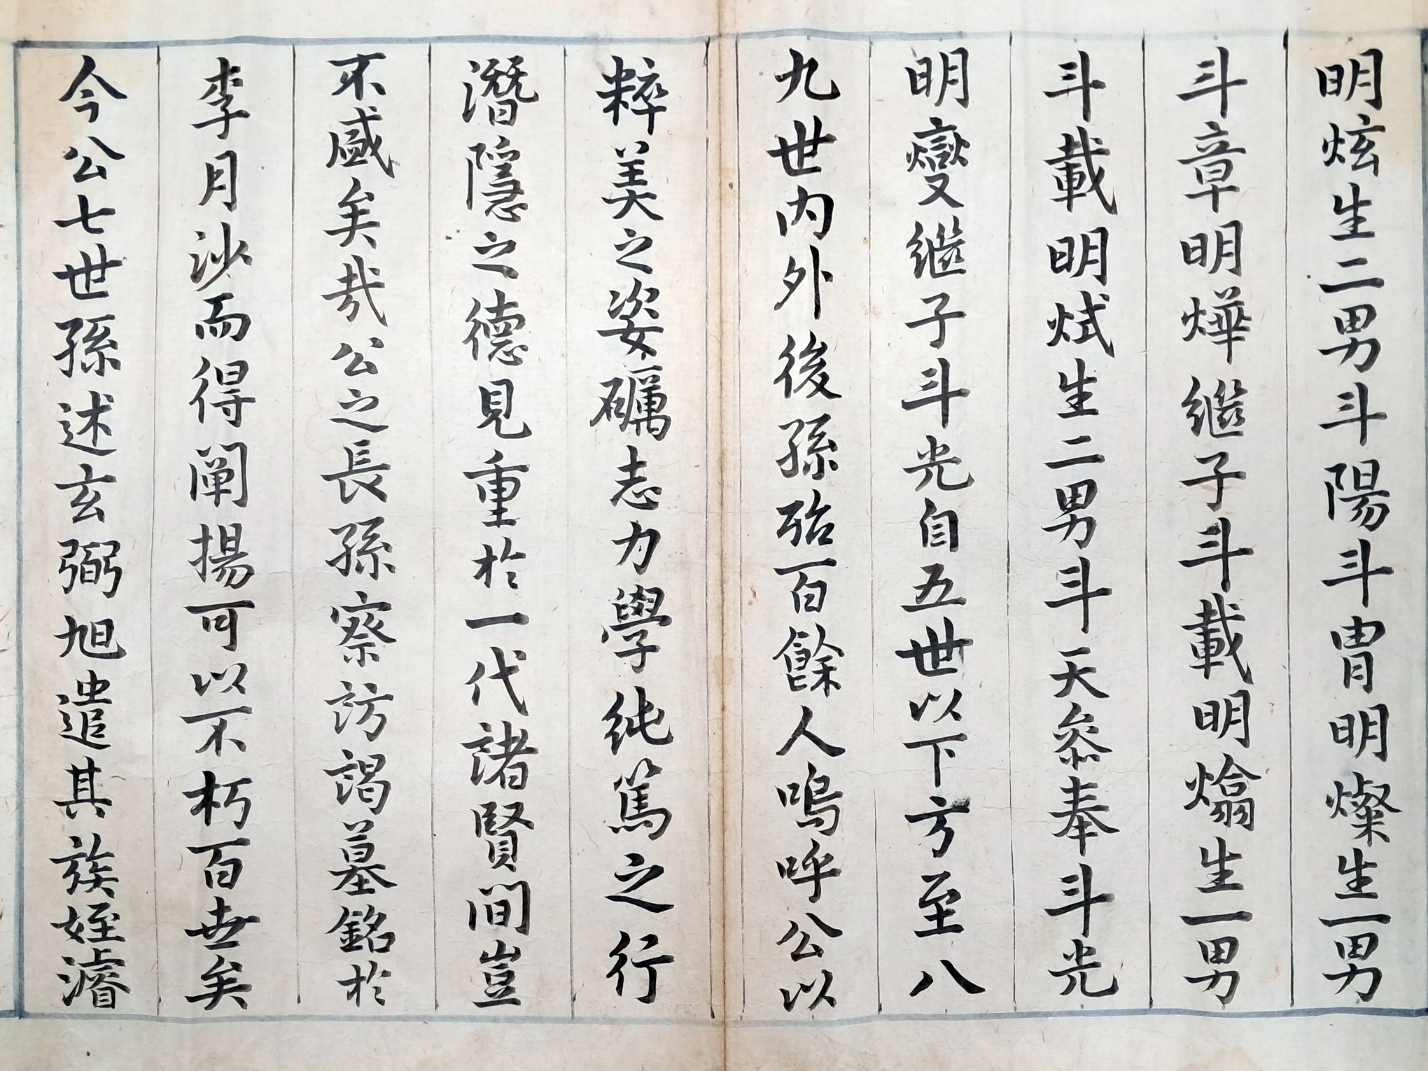 明炫生二男斗陽斗冑明燦生一男
斗章明燁継子斗載明熻生一男
斗載明烒生二男斗天叅奉斗光
明燮継子斗光自五世以下方至八
九世内外後孫殆百餘人嗚呼公以
粹美之姿礪志力學純篤之行
潛隱之德見重於一代諸賢間豈
不盛矣哉公之長孫察訪謁墓銘於
李月沙而得闡揚可以不朽百世矣
今公七世孫述玄弼旭遣其族姪濬